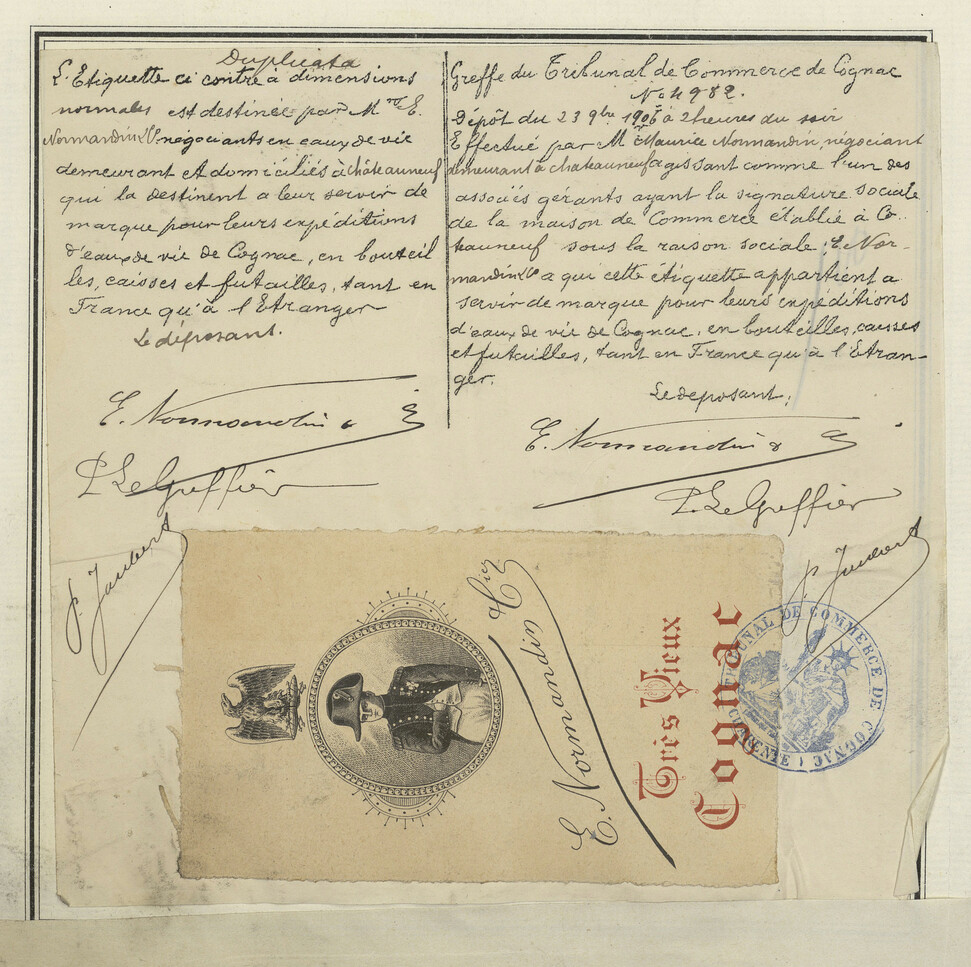 Duplicata
L'Etiquette ci contre à dimensions
normales est destinée par M rs E.
Normandin & Cie négociants en eaux de vie
demeurant et domiciliés à châteauneuf
qui la destinent a leur servir de
marque pour leurs expéditions
d'eaux de vie de Cognac, en bouteil
les, caisses et futailles, tant en
France qu'à l'Etranger
Le déposant.
E. Normandin & Cie
P. Le Greffier
P. Jaubert
Greffe du Tribunal de Commerce de Cognac
No 4982.
Dépôt du 23 9bre 1906 à 2 heures du soir
Effectué par M Maurice Normandin, négociant
demeurant à chateauneuf agissant comme l'un des
associés gérants ayant la signature sociale
de la maison de Commerce établie à
teauneuf sous la raison sociale: E. Nor-
mandin & Cie a qui cette étiquette appartient a
servir de marque pour leurs expéditions
d'eaux de vie de Cognac, en bouteilles, caisses
et futailles, tant en France qu'à l'Etran-
ger.
Le deposant,
E. Normandin & Cie
P. Le Greffier
P. Jaubert
E. Normandin & Cie
Très Vieux
Cognac
TRIBUNAL DE COMMERCE DE COGNAC
(CHARENTE)